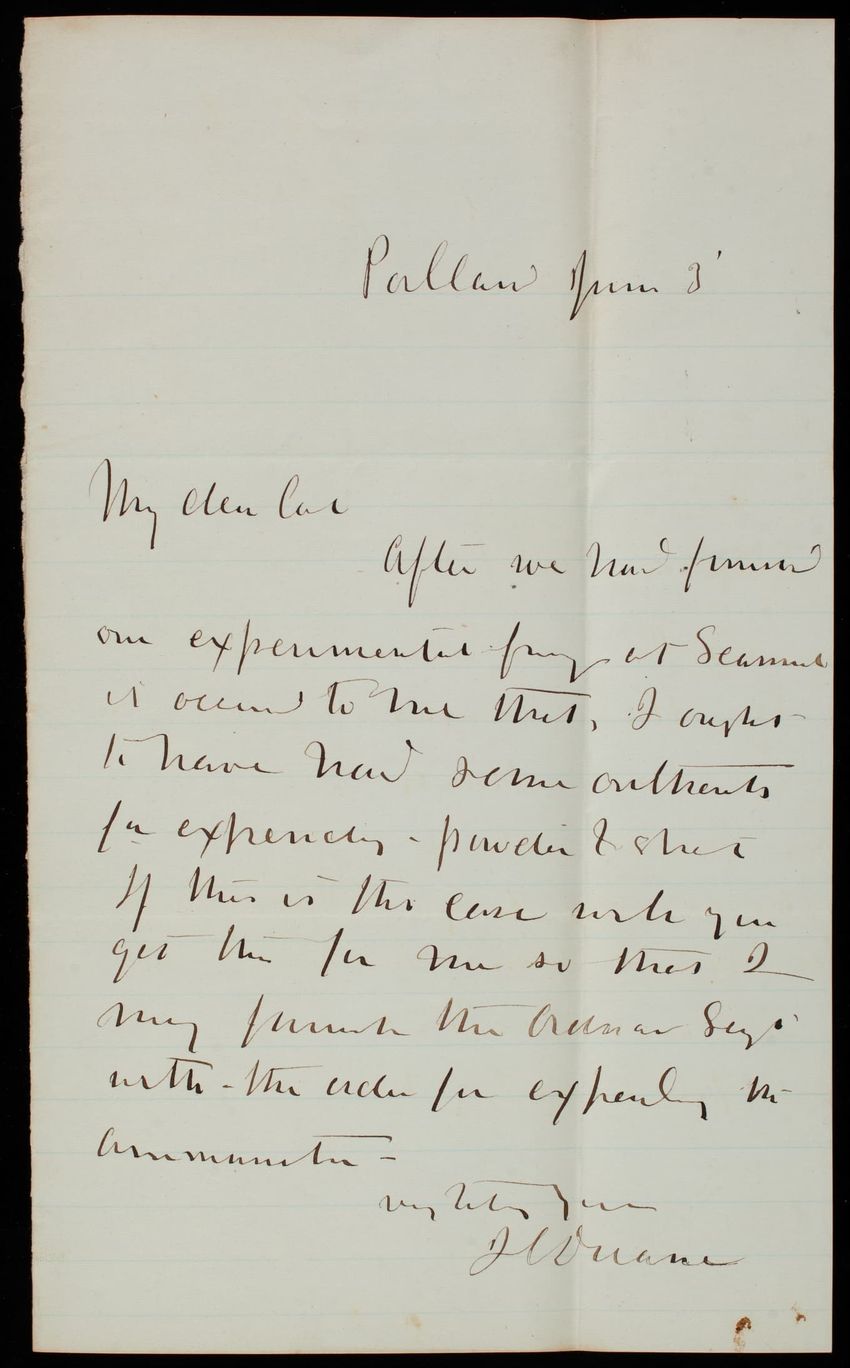 Portland June 3'
My dear Col
After we had finished
our experimental firing at Scammel
it occured to me that, I ought
to have had some authority
for expending - powder & shot
If this is the case with you
get this for me so that I
may furnish the Ordnance Sergt
with - the order for expending the
ammunition -
very truly yours
J C Duane